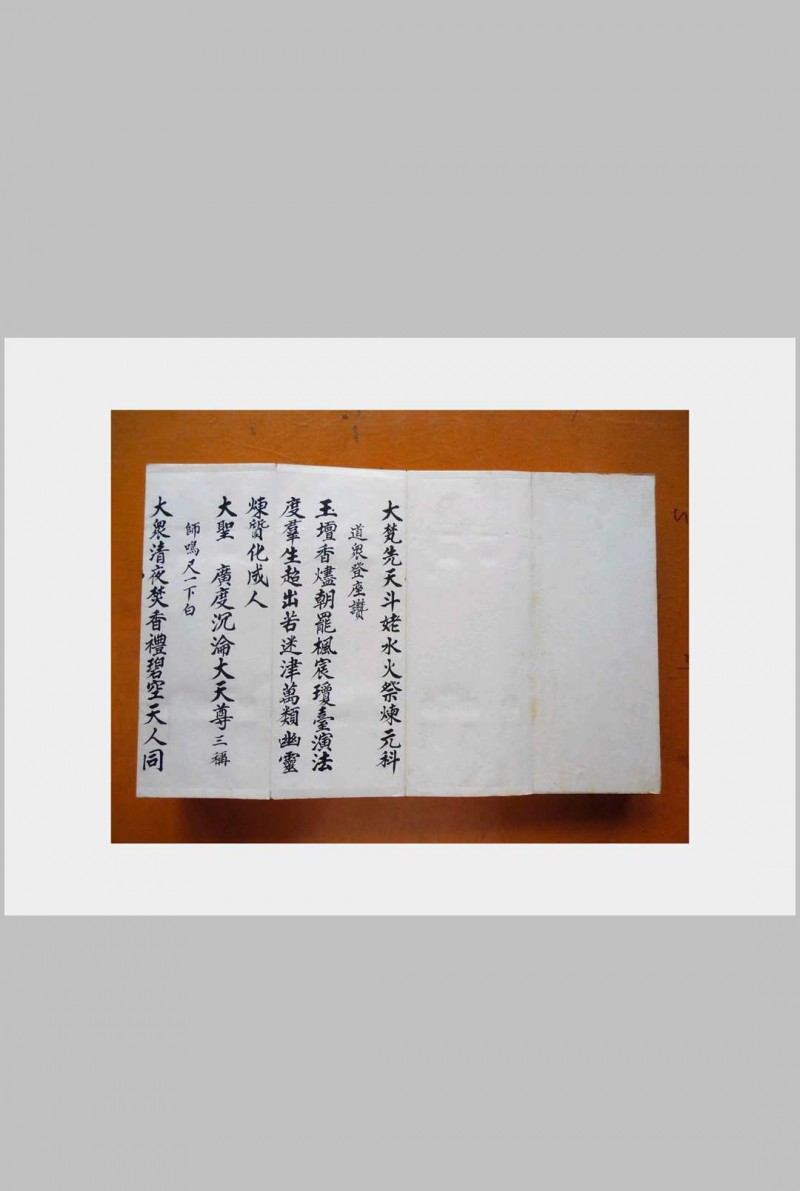 大梵先天斗姥水火祭煉元科
道衆登座讚
玉壇香燼朝罷楓宸瓊臺演法
度羣生超出若迷津萬類幽靈
煉質化成人
大聖　廣度沉淪大天尊三稱
師鳴尺一下白
大衆清夜焚香禮碧空天人同